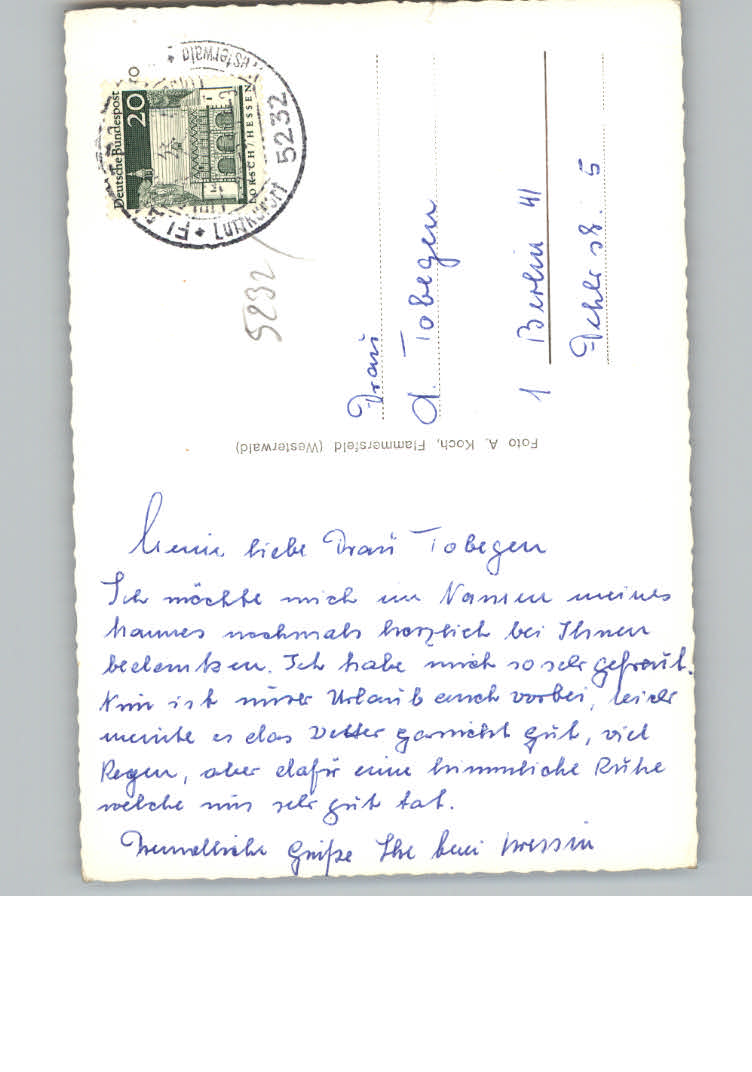 Deutsche Bundespost
20
LORSCH / HESSEN
Luftkurort 5232
Westerwald
5232
Frau
A. Tobegen
1 Berlin 41
str. 5
Foto A. Koch, Flammersfeld (Westerwald)
Meine liebe Frau Tobegen
Ich möchte mich im Namen meines
Mannes nochmals herzlich bei Ihnen
bedanken. Ich habe mich so sehr gefreut.
Nun ist unser Urlaub auch vorbei, leider
meinte es das Wetter garnicht gut, viel
Regen, aber dafür eine himmliche Ruhe
welche uns sehr gut tat.
Freundliche Grüße Ihre